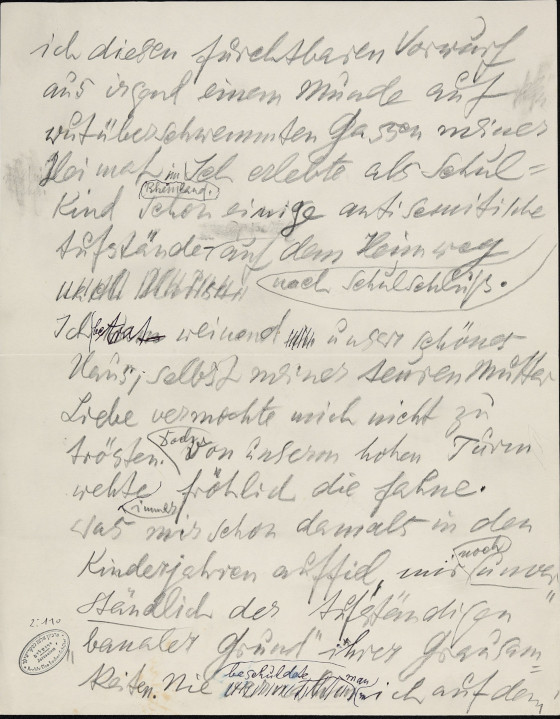 ich diesen furchtbaren Vorwurf
aus irgend einem Munde auf
wutüberschwemmten Gassen meiner
Heimat im Rheinland. Ich erlebte als Schul=
kind schon einige antisemitische
Aufstände auf dem Heimweg
nach Schulschluß.
Ich betrat weinend unser schönes
Haus; selbst meiner teuren Mutter
Liebe vermochte mich nicht zu
trösten. Doch von unserm hohen Turm
wehte immer fröhlich die Fahne.
Was mir schon damals in den
Kinderjahren auffiel, mir noch unver
ständlich der Aufständigen
"banaler Grund" ihrer Grausam=
keiten. Nie beschuldete man mich auf dem
2:110